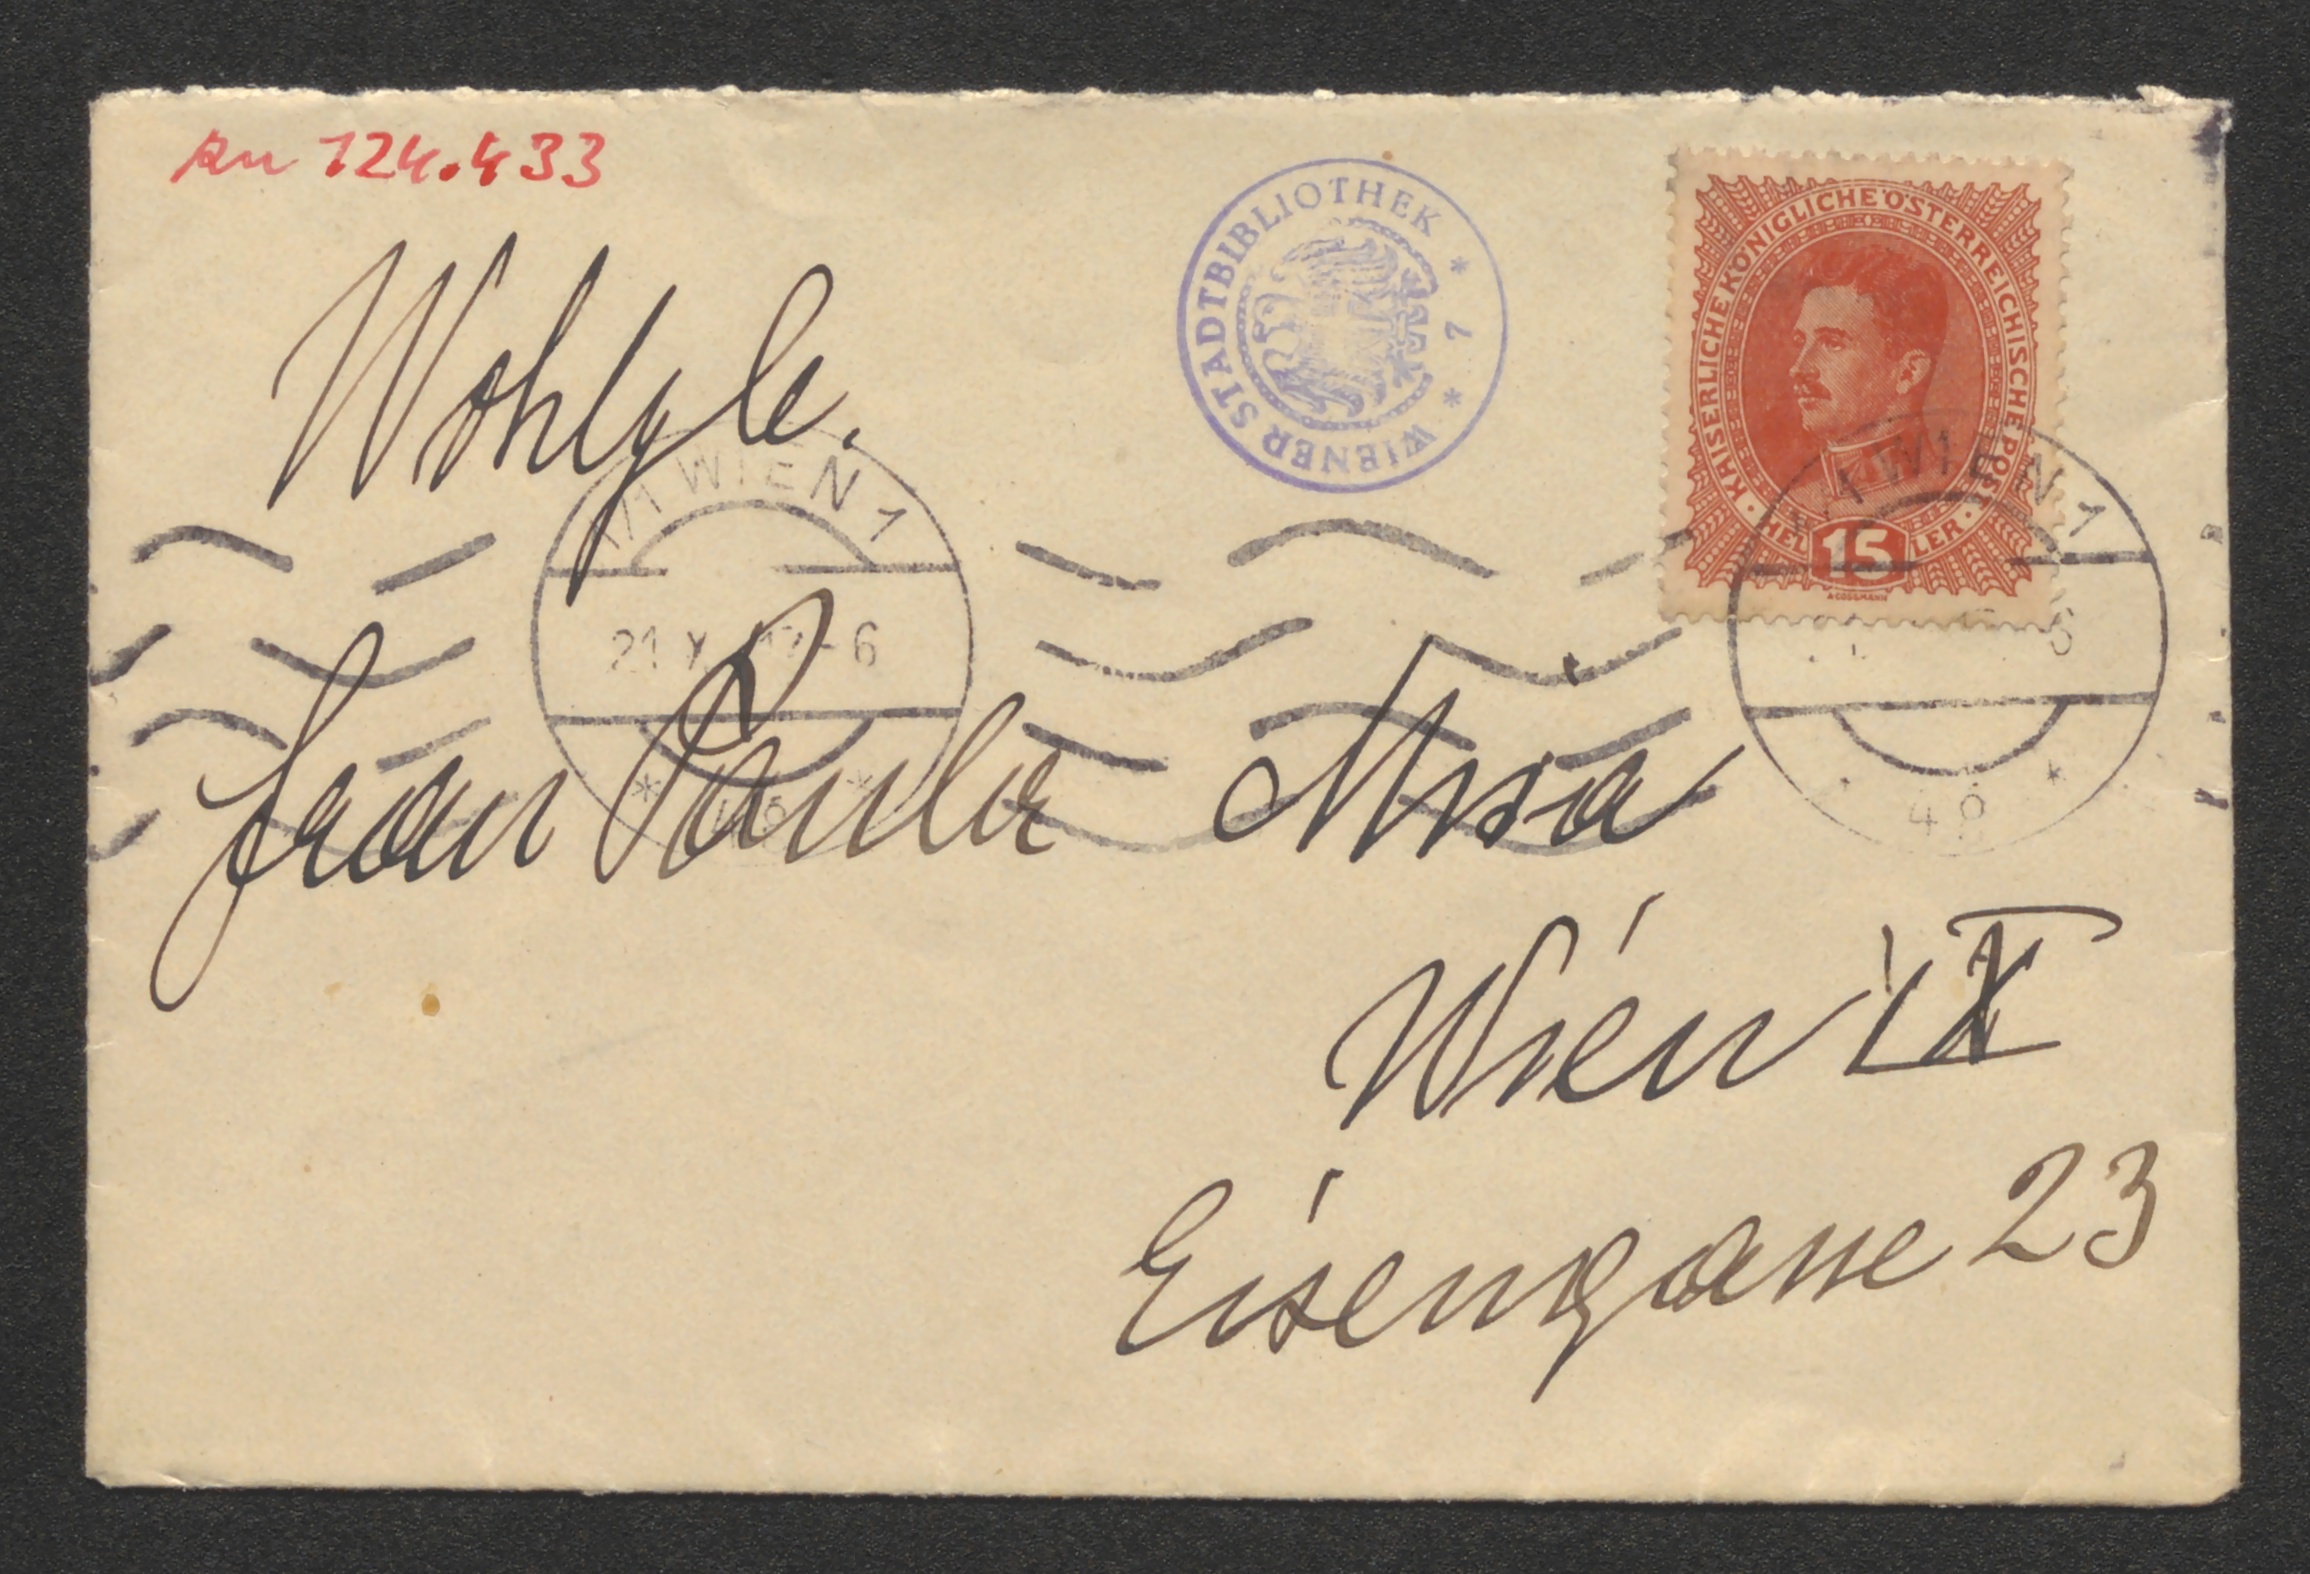 zu 124.433
WIENER STADTBIBLIOTHEK * 7 *
KAISERLICHE KÖNIGLICHE ÖSTERREICHISCHE POST
HELLER
15
Wohlg.
1/1 WIEN 1
1/1 WIEN 1
21 X 17-6
Frau Paula
Wien IX
Eisengasse 23